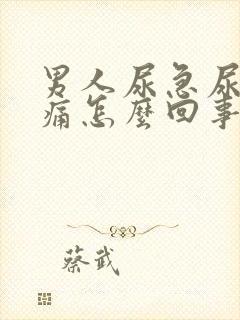 男人尿急尿
痛怎麼回事
蔡武